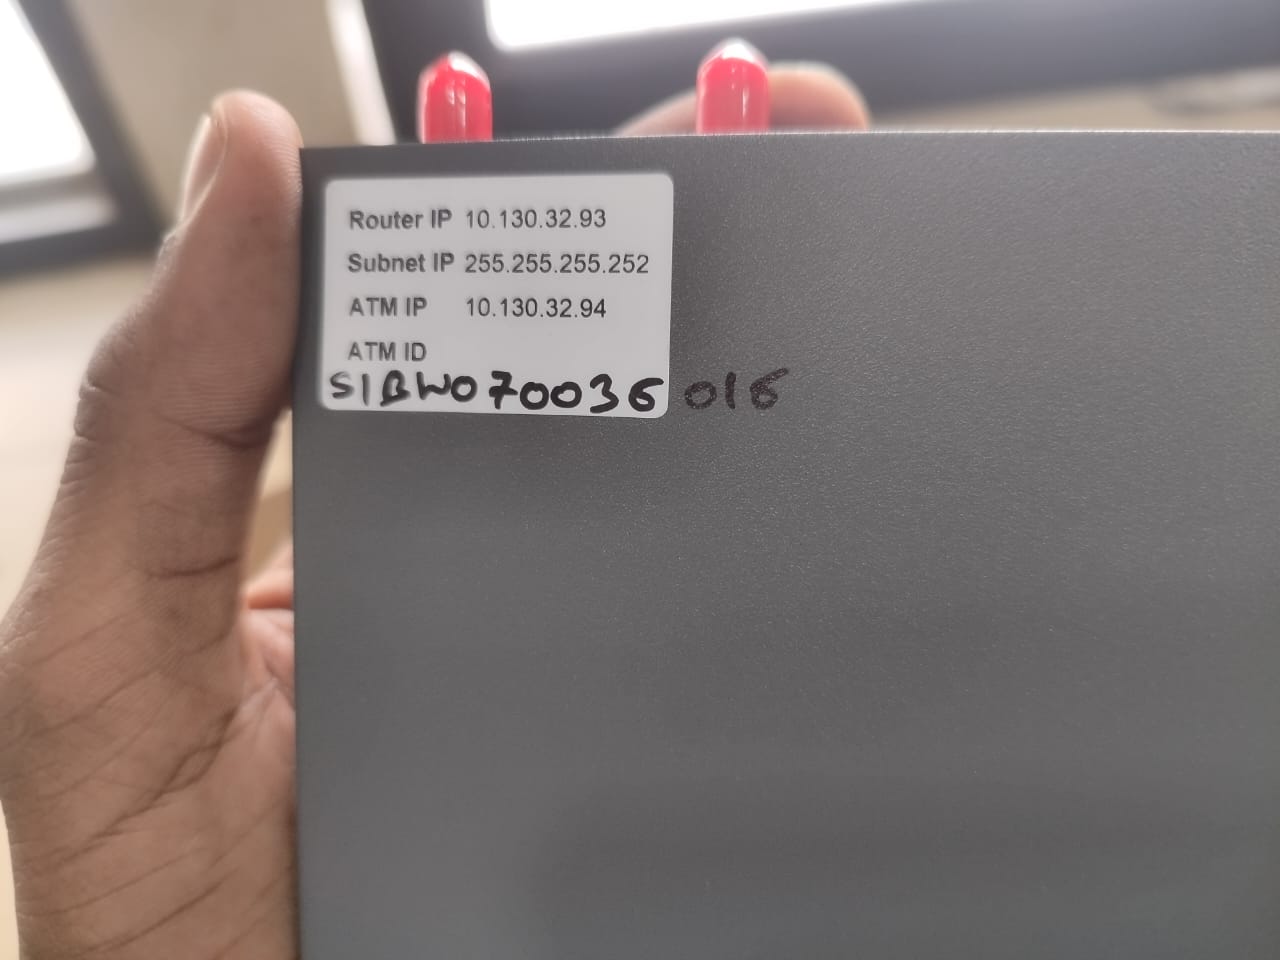 Router IP 10.130.32.93
Subnet IP 255.255.255.252
ATM IP 10.130.32.94
ATM ID
S1BW070036016